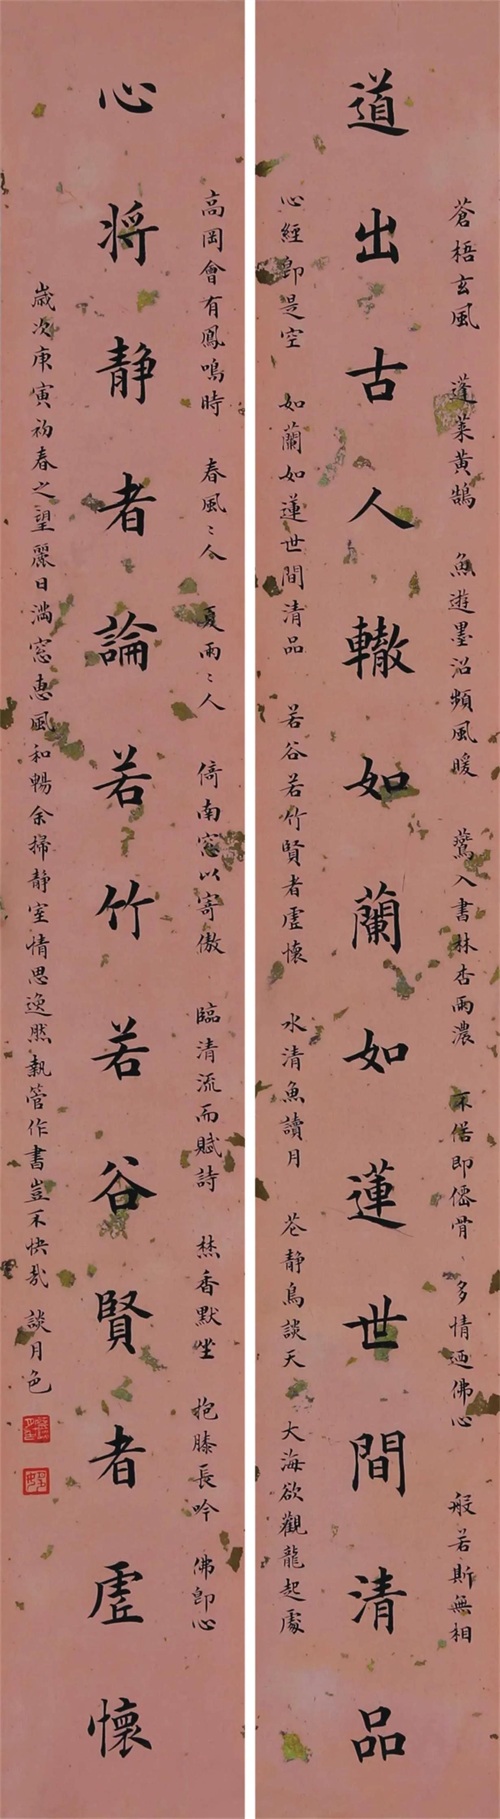 蒼梧玄風　蓬萊黃鵠　魚遊墨沼頻風暖　鶯入書林杏雨濃　不俗即僊骨　多情迺佛心　般若斯無相
道出古人轍如蘭如蓮世間清品
心經即是空　如蘭如蓮世間清品　若谷若竹賢者虛懷　水清魚讀月　花静鳥談天　大海欲觀龍起處
高岡會有鳳鳴時　春風〻人　夏雨〻人　倚南窓以寄傲　臨清流而賦詩　焚香默坐　抱膝長吟　佛即心
心將靜者論若竹若谷賢者虛懷
歲次庚寅初春之望麗日滿窓惠風和暢余掃静室情思逸然執管作書豈不快哉　談月色